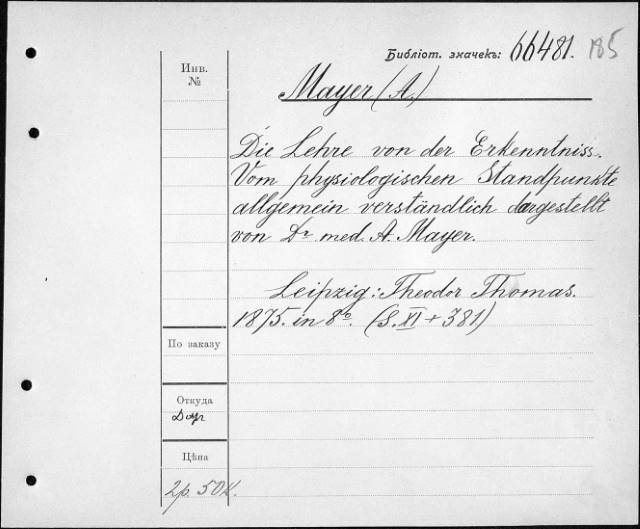 Библіот. значекъ: 66481. 185
Инв.
№
Mayer (A.)
Die Lehre von der Erkenntniss.
Vom physiologischen Standpunkte
allgemein verständlich dargestellt
von Dr med. A. Mayer.
Leipzig: Theodor Thomas.
1875. in 8o. (S. XI + 381)
По заказу
Откуда
Дар
Цѣна
2р. 50к.